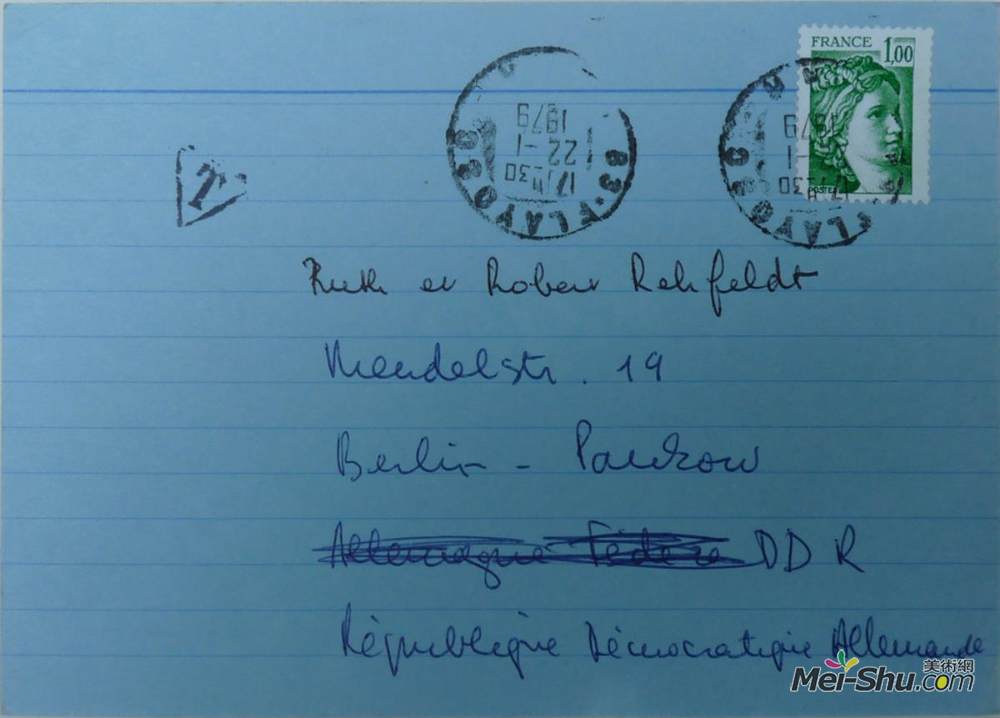 FRANCE 1,00
POSTES
83-FLAYOSC
17 H 30
22-1
1979
83-FLAYOSC
17 H 30
-1
1979
T
Ruth et Robert Rehfeldt
Mendelstr. 19
Berlin - Pankow
Allemagne Fédéra DDR
République Démocratique Allemande
美術網
Mei-Shu.com